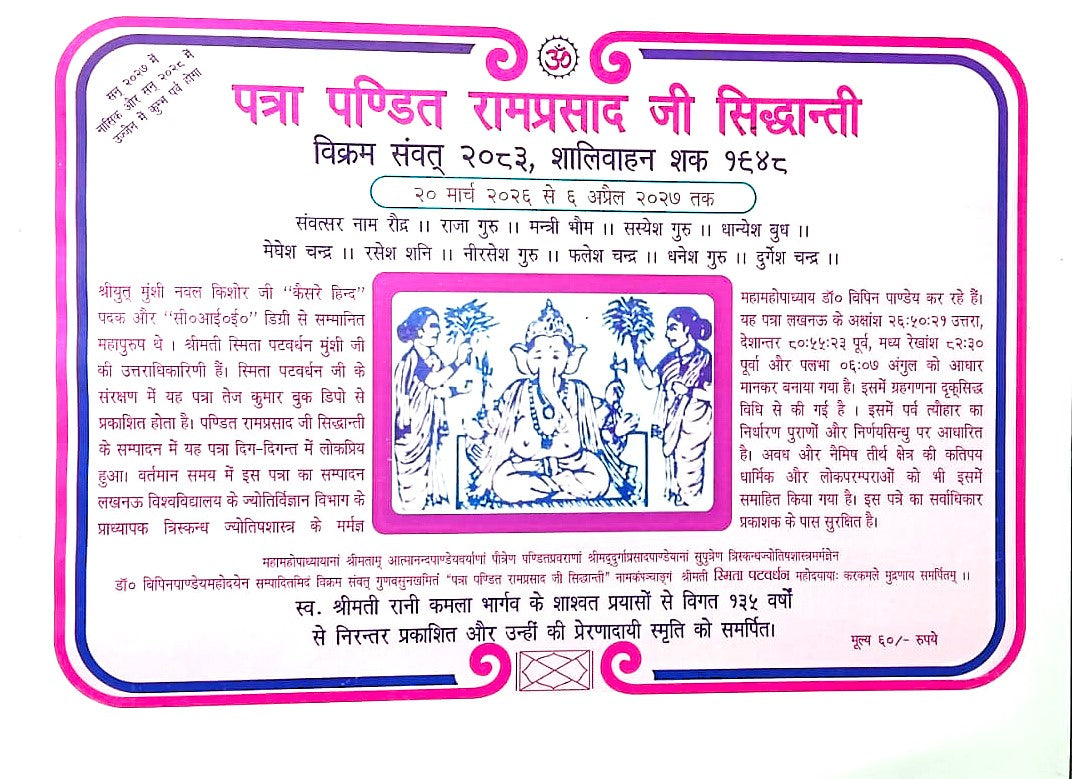 ॐ
सन् २०२७ में
नासिक और सन् २०२८ में
उज्जैन में कुम्भ पर्व होगा
पत्रा पण्डित रामप्रसाद जी सिद्धान्ती
विक्रम संवत् २०८३, शालिवाहन शक १९४८
२० मार्च २०२६ से ६ अप्रैल २०२७ तक
संवत्सर नाम रौद्र ।। राजा गुरु ।। मन्त्री भौम ।। सस्येश गुरु ।। धान्येश बुध ।।
मेघेश चन्द्र ।। रसेश शनि ।। नीरसेश गुरु ।। फलेश चन्द्र ।। धनेश गुरु ।। दुर्गेश चन्द्र ।।
श्रीयुत् मुंशी नवल किशोर जी “कैसरे हिन्द”
पदक और “सी०आई०ई०” डिग्री से सम्मानित
महापुरुष थे । श्रीमती स्मिता पटवर्धन मुंशी जी
की उत्तराधिकारिणी हैं। स्मिता पटवर्धन जी के
संरक्षण में यह पत्रा तेज कुमार बुक डिपो से
प्रकाशित होता है। पण्डित रामप्रसाद जी सिद्धान्ती
के सम्पादन में यह पत्रा दिग-दिगन्त में लोकप्रिय
हुआ। वर्तमान समय में इस पत्रा का सम्पादन
लखनऊ विश्वविद्यालय के ज्योतिर्विज्ञान विभाग के
प्राध्यापक त्रिस्कन्ध ज्योतिषशास्त्र के मर्मज्ञ
महामहोपाध्याय डॉ० विपिन पाण्डेय कर रहे हैं।
यह पत्रा लखनऊ के अक्षांश २६:५०:२१ उत्तरा,
देशान्तर ८०:५५:२३ पूर्व, मध्य रेखांश ८२:३०
पूर्वा और पलभा ०६:०७ अंगुल को आधार
मानकर बनाया गया है। इसमें ग्रहगणना दृक्‌सिद्ध
विधि से की गई है । इसमें पर्व त्यौहार का
निर्धारण पुराणों और निर्णयसिन्धु पर आधारित
है। अवध और नैमिष तीर्थ क्षेत्र की कतिपय
धार्मिक और लोकपरम्पराओं को भी इसमें
समाहित किया गया है। इस पत्रे का सर्वाधिकार
प्रकाशक के पास सुरक्षित है।
महामहोपाध्यायानां श्रीमताम् आत्मानन्दपाण्डेयवर्याणां पौत्रेण पण्डितप्रवराणां श्रीमद्दुर्गाप्रसादपाण्डेयानां सुपुत्रेण त्रिस्कन्धज्योतिषशास्त्रमर्मज्ञेन
डॉ० विपिनपाण्डेयमहोदयेन सम्पादितमिदं विक्रम संवत् गुणवसुनखमितं “पत्रा पण्डित रामप्रसाद जी सिद्धान्ती” नामकंपञ्चाङ्गं श्रीमती स्मिता पटवर्धन महोदयायाः करकमले मुद्रणाय समर्पितम् ।।
स्व. श्रीमती रानी कमला भार्गव के शाश्वत प्रयासों से विगत १३५ वर्षों
से निरन्तर प्रकाशित और उन्हीं की प्रेरणादायी स्मृति को समर्पित।
मूल्य ६०/- रुपये